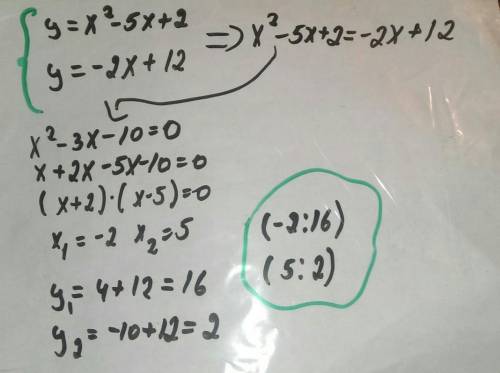 y = x² - 5x + 2
y = -2x + 12
=> x² - 5x + 2 = -2x + 12
x² - 3x - 10 = 0
x + 2x - 5x - 10 = 0
(x+2)·(x-5) = 0
x₁ = -2 x₂ = 5
y₁ = 4 + 12 = 16
y₂ = -10 + 12 = 2
(-2:16)
(5:2)